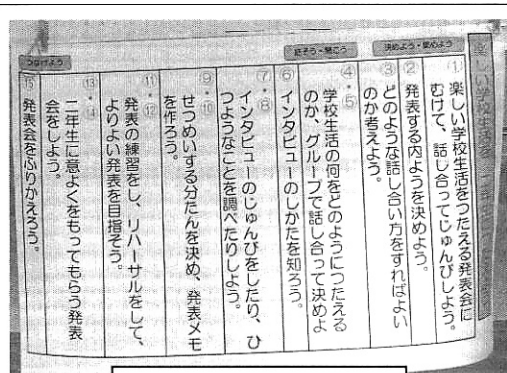 楽しい学校生活を
①楽しい学校生活をつたえる発表会に
むけて、話し合ってじゅんびしよう。
②発表する内ようを決めよう。
③どのような話し合い方をすればよい
のか考えよう。
④・⑤学校生活の何をどのようにつたえる
のか、グループで話し合って決めよ
う。
⑥インタビューのしかたを知ろう。
⑦・⑧インタビューのじゅんびをしたり、ひ
つようなことを調べたりしよう。
⑨・⑩せつめいする分たんを決め、発表メモ
を作ろう。
⑪・⑫発表の練習をし、リハーサルをして、
よりよい発表を目指そう。
⑬・⑭二年生に意よくをもってもらう発表
会をしよう。
⑮発表会をふりかえろう。
決めよう・集めよう
話そう・聞こう
つなげよう